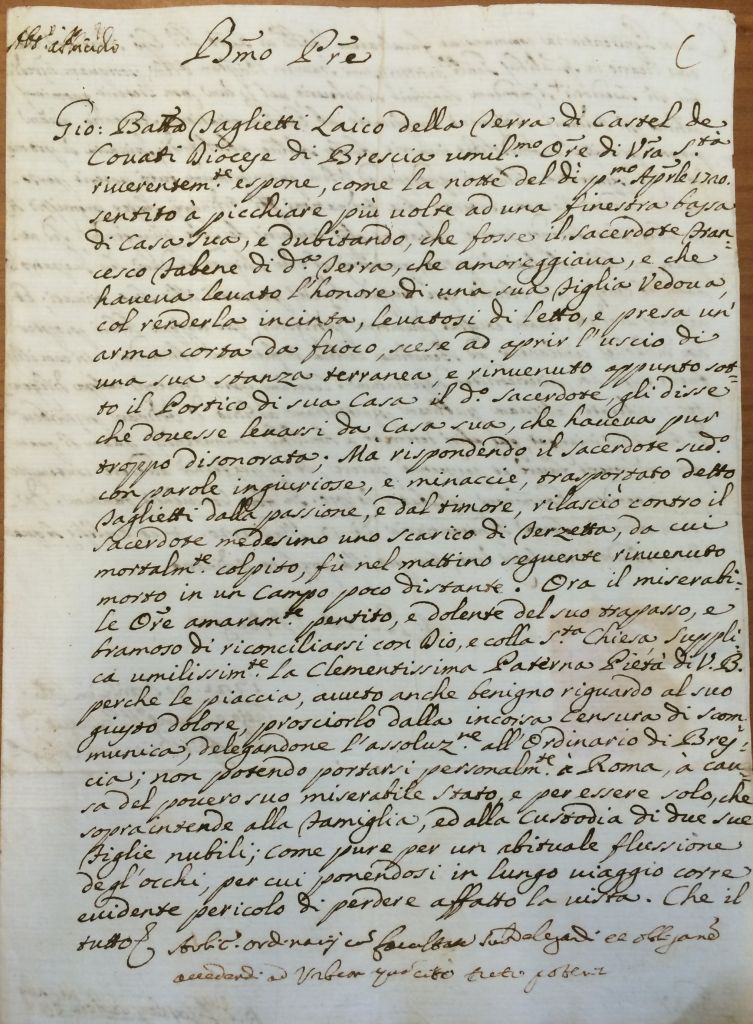 Bmo Pre
Gio: Batta Taglietti Laico della Terra di Castel de
Covati Diocese di Brescia umil.mo Ore di Vra S.tà
riverentem.te espone, come la notte del dì p.mo Aprle 1720.
sentito à picchiare più volte ad una finestra bassa
di Casa sua, e dubitando, che fosse il sacerdote Fran=
cesco Tabene di d.a Terra, che amoreggiava, e che
haveva levato l'honore di una sua Figlia Vedova,
col renderla incinta, levatosi di letto, e presa un'
arma corta da fuoco, scese ad aprir l'uscio di
una sua stanza terranea, e rinvenuto appunto sot=
to il Portico di sua Casa il d.o sacerdote, gli disse
che dovesse levarsi da Casa sua, che haveva pur
troppo disonorata; Mà rispondendo il sacerdote sud.o
con parole ingiuriose, e minaccie, trasportato detto
Taglietti dalla passione, e dal timore, rilasciò contro il
sacerdote medesimo uno scarico di Terzetta, da cui
mortalm.te colpito, fù nel mattino seguente rinvenuto
morto in un Campo poco distante. Ora il miserabi=
le Ore amaram.te pentito, e dolente del suo trapasso, e
bramoso di riconciliarsi con Dio, e colla S.ta Chiesa suppli
ca umilissim.te la Clementissima Paterna Pietà di V. B.
perche le piaccia, avuto anche benigno riguardo al suo
giusto dolore, prosciorlo dalla incorsa Censura di scom=
munica, delegandone l'assoluz.ne all'Ordinario di Bres=
cia; non potendo portarsi personalm.te à Roma, à cau=
sa del povero suo miserabile stato, e per essere solo, che
sopraintende alla Famiglia, ed alla Custodia di due sue
Figlie nubili; come pure per un abituale flussione
degl'occhi, per cui ponendosi in lungo viaggio corre
evidente pericolo di perdere affatto la vista. Che il
tutto
ordinarij facultas subdelegandi
accedendi ad Urbem tuto poterit